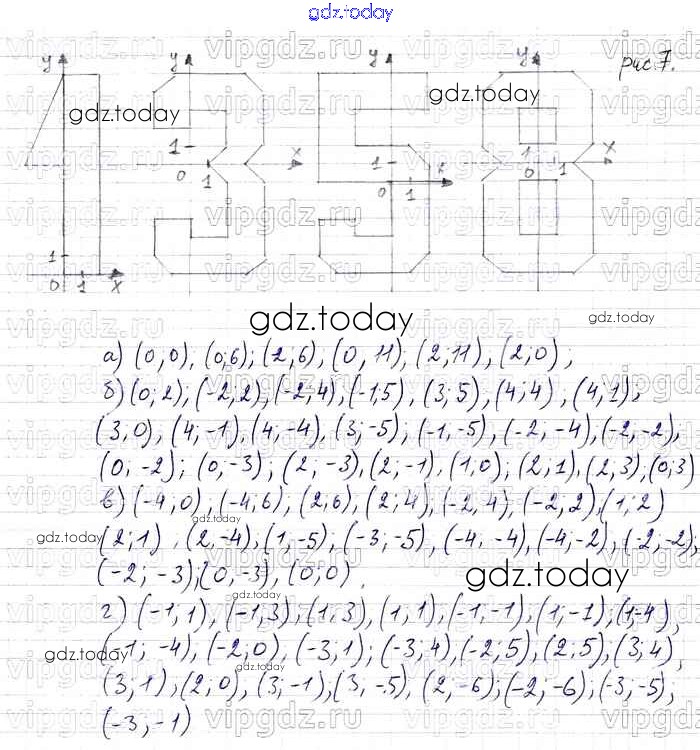 gdz.today
vipgdz.ru vipgdz.ru vipgdz.ru
y y y y рис. 7.
gdz.today gdz.today
1 1 1 x
0 1 x 0 1 x 0 1
1
0 1 x
gdz.today gdz.today
а) (0;0), (0;6); (2;6); (0, 11), (2;11), (2;0);
б) (0;2); (-2;2); (-2;4), (-1;5), (3;5), (4;4), (4,1),
(3,0), (4;-1), (4,-4), (3;-5); (-1,-5), (-2,-4), (-2;-2),
(0,-2); (0,-3); (2,-3), (2;-1), (1,0); (2;1), (2,3), (0;3)
в) (-4;0), (-4;6), (2;6), (2;4), (-2,4), (-2;2), (1;2)
gdz.today
(2;1), (2,-4), (1,-5), (-3;-5), (-4,-4), (-4;-2), (-2,-2);
gdz.today
(-2;-3); (0,-3), (0;0)
gdz.today
г) (-1,1), (-1,3), (1,3), (1,1), (-1,-1), (1;-1); (1,-4),
(-1;-4), (-2;0), (-3;1); (-3;4), (-2;5), (2;5), (3;4),
gdz.today
(3;1), (2;0), (3;-1), (3,-5), (2,-6); (-2;-6); (-3;-5);
gdz.today
(-3;-1)